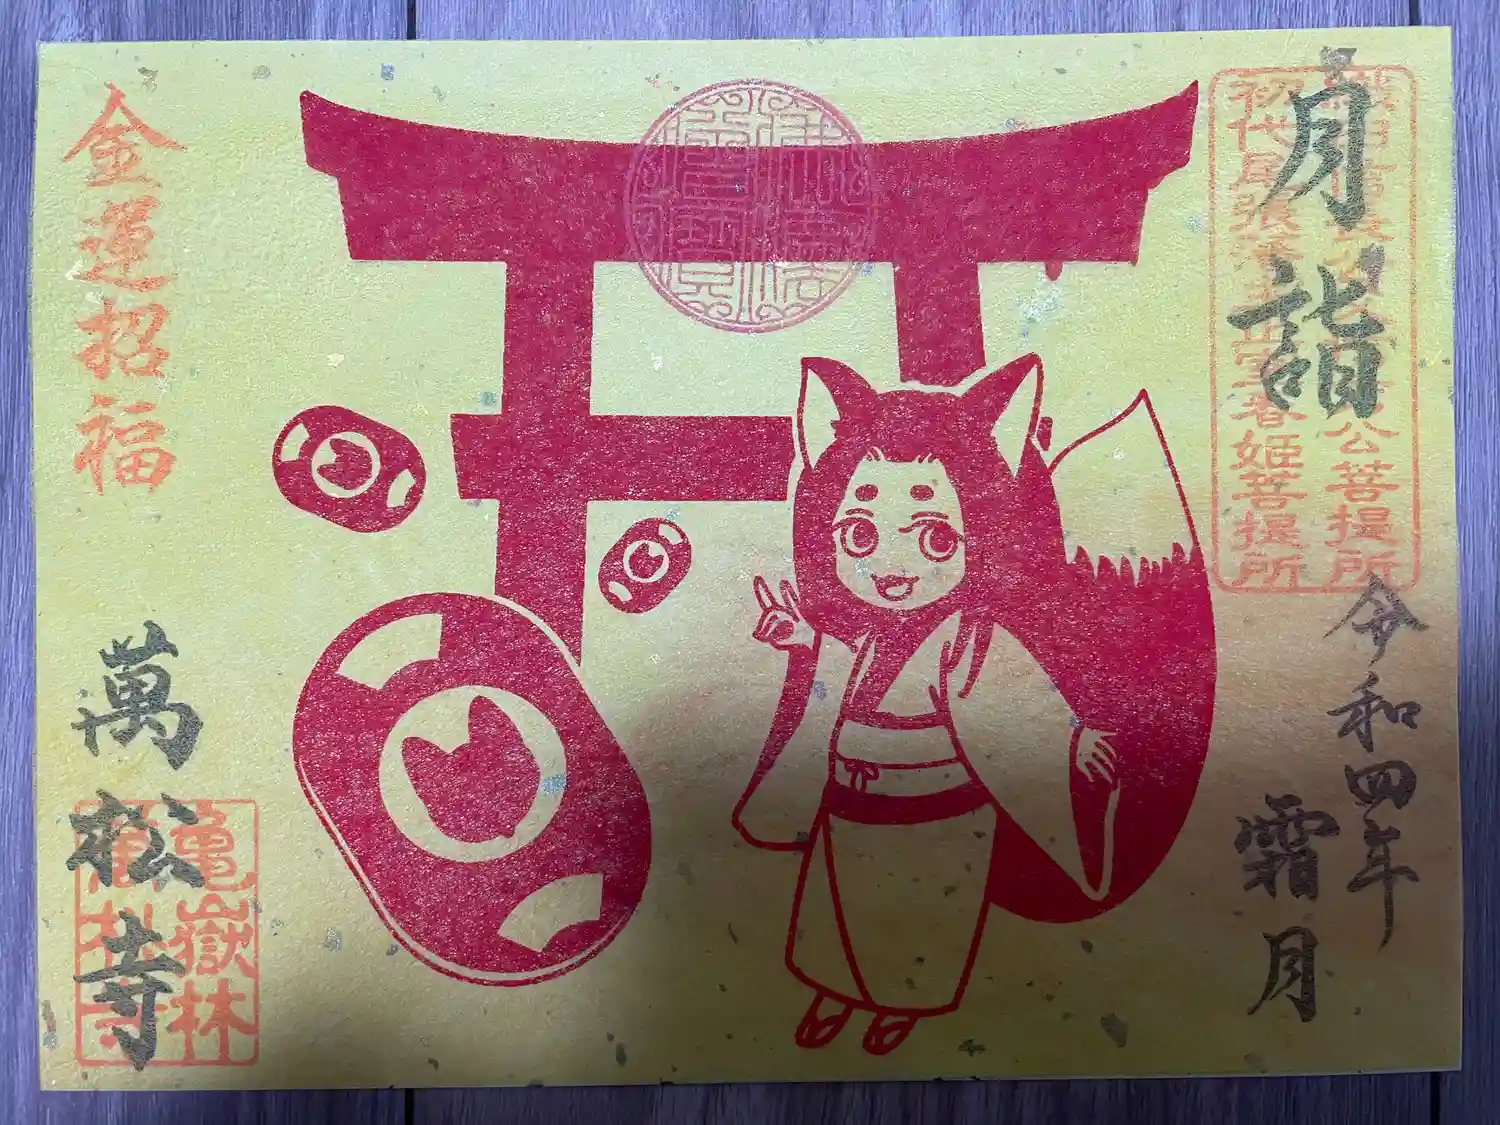 月詣
初代尾張藩主正室春姫菩提所
公菩提所
令和四年
霜月
金運招福
萬松寺
亀嶽林
萬松寺